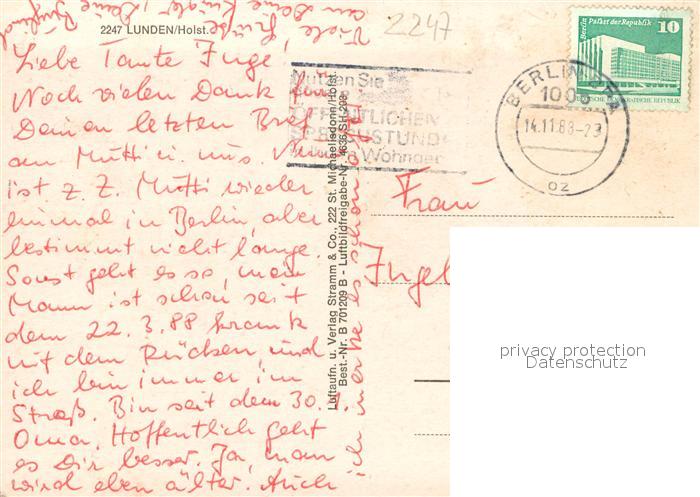 2247 LUNDEN/Holst.
2247
Liebe Tante Inge,
Noch vielen Dank für
Deinen letzten Brief
an Mutti u. uns. Nun
ist z. Z. Mutti wieder
einmal in Berlin, aber
bestimmt nicht lange.
Sonst geht es so, mein
Mann ist schon seit
dem 22. 3. 88 krank
mit dem Rücken, und
ich bin immer im
Streß. Bin seit dem 30. 1.
Oma. Hoffentlich geht
es Dir besser. Ja, man
wird eben älter. Auch
ich merke es schon
Viele, Grüße
an Deine Kinder, Deine
Luftaufn. u. Verlag Stramm & Co., 222 St. Michaelisdonn/Holst.
Best.-Nr. B 701209 B - Luftbildfreigabe-Nr. 4636 SH 203
Nutzen Sie
ÖFFENTLICHEN
SPRECHSTUNDE
Wohnge
BERLIN
14.11.88-23
oz
Berlin Palast der Republik
10
DEUTSCHE DEMOKRATISCHE REPUBLIK
Frau
privacy protection
Datenschutz